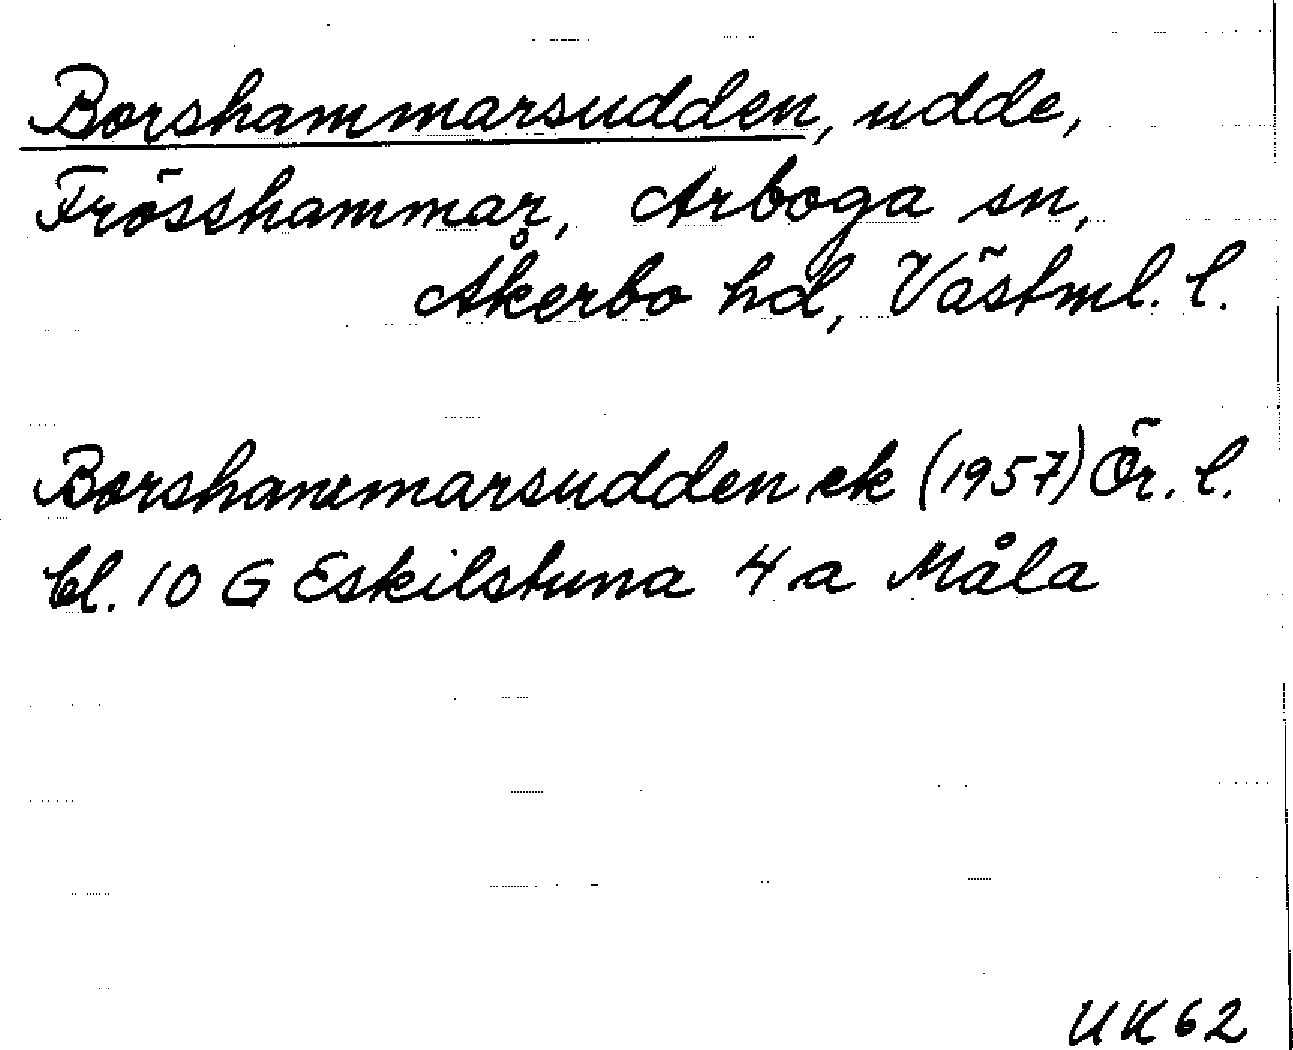 Borshammarsudden, udde,
Frösshammar, Arboga sn,
Åkerbo hd, Västml. l.
Borshammarsudden ek (1957) Ör. l.
bl. 10 G Eskilstuna 4 a Måla
UK62